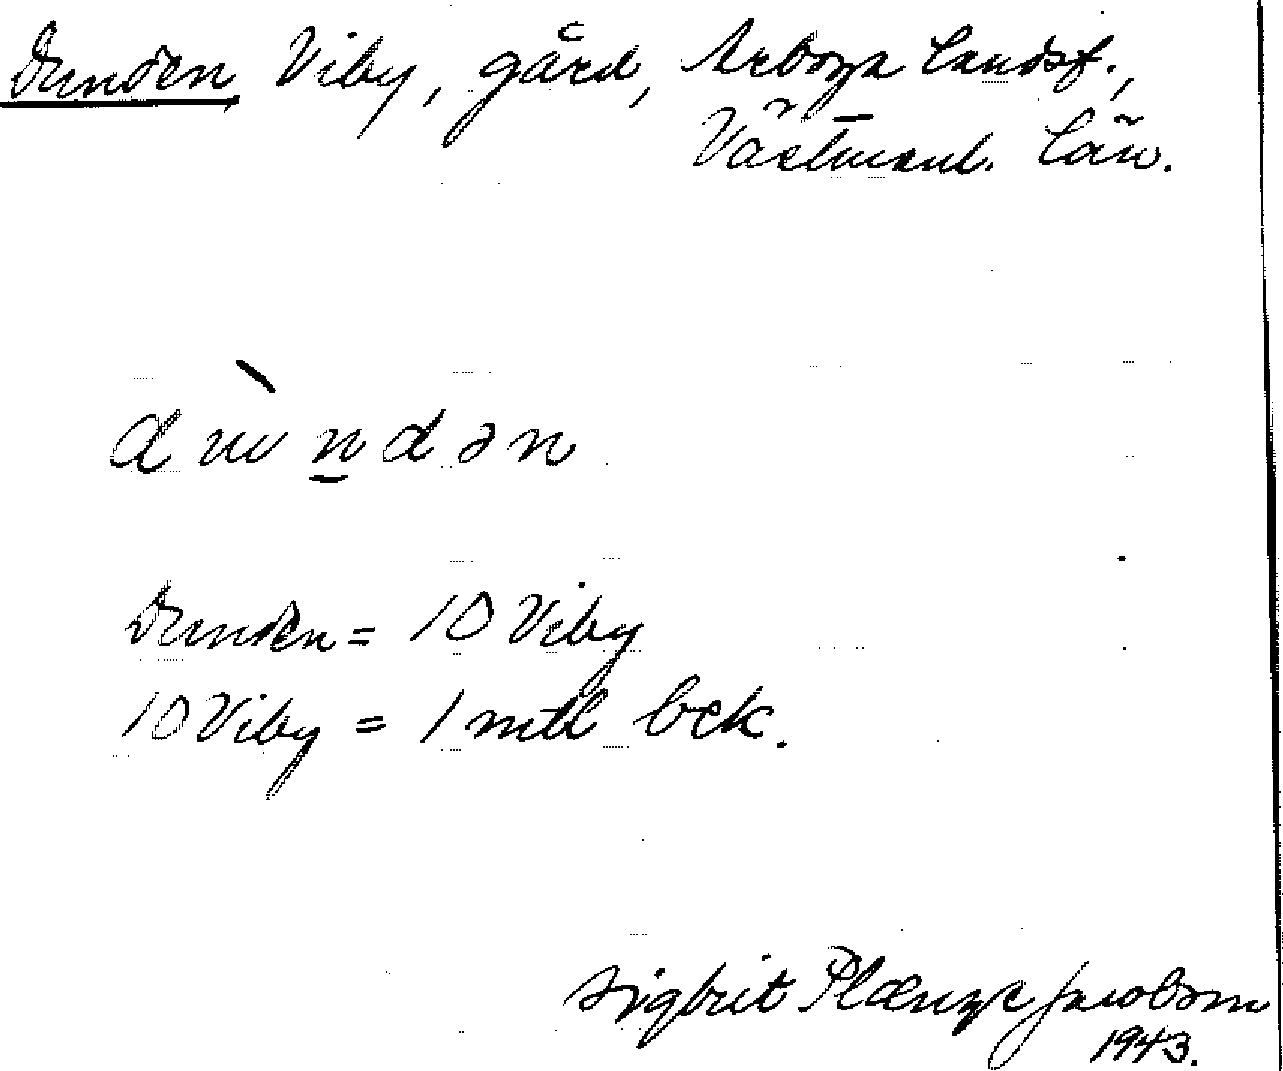 Dunden, Viby, gård, Arboga landsf.,
Västmanl. län.
dùndən
Dunden = 10 Viby
10 Viby = 1 mtl bek.
Sigbrit Plænge Jacobson
1943.